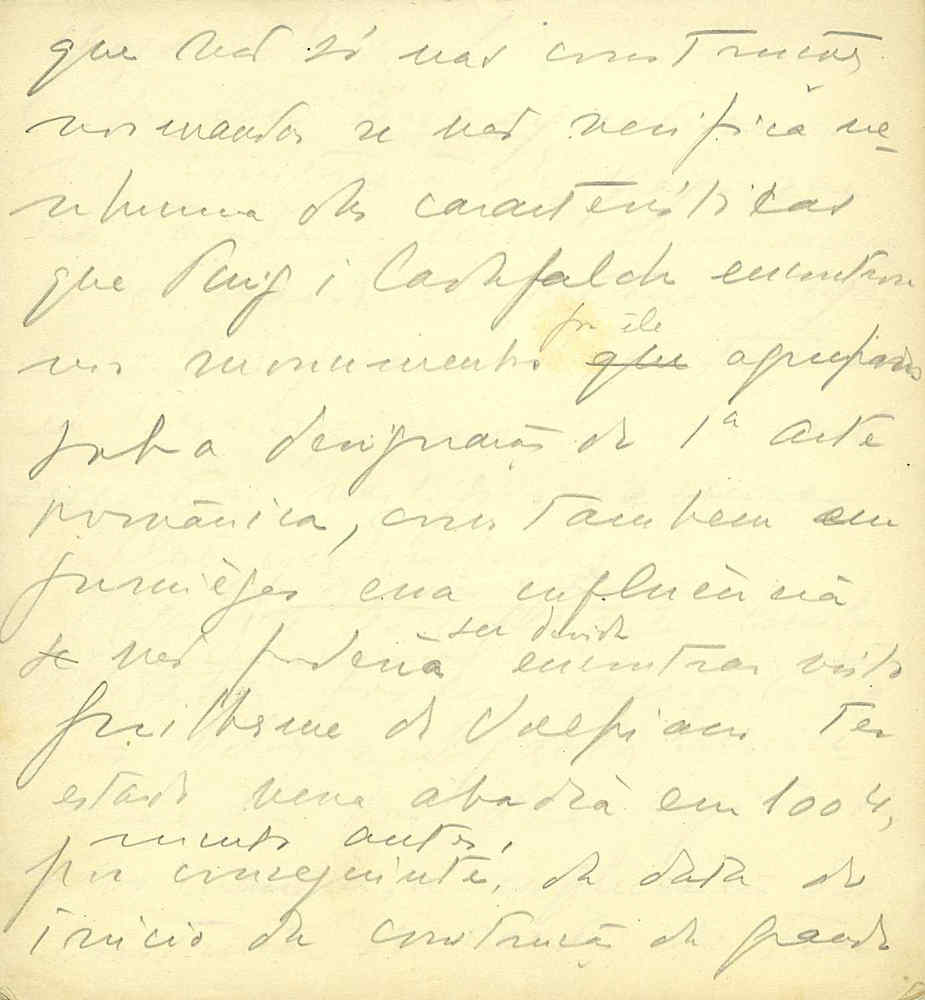 que não só nas construções
normandas se não verifica ne-
nhuma das características
que Puig i Cadafalch encontrou
por êle
nos monumentos que agrupados
sob a designação de 1ª arte
românica, como tambem em
Jumièges essa influência
ser devida
se não poderia encontrar visto
Guilherme de Volpiano ter
estado nessa abadia em 1004,
muito antes,
por conseguinte, da data do
início da construção da grande